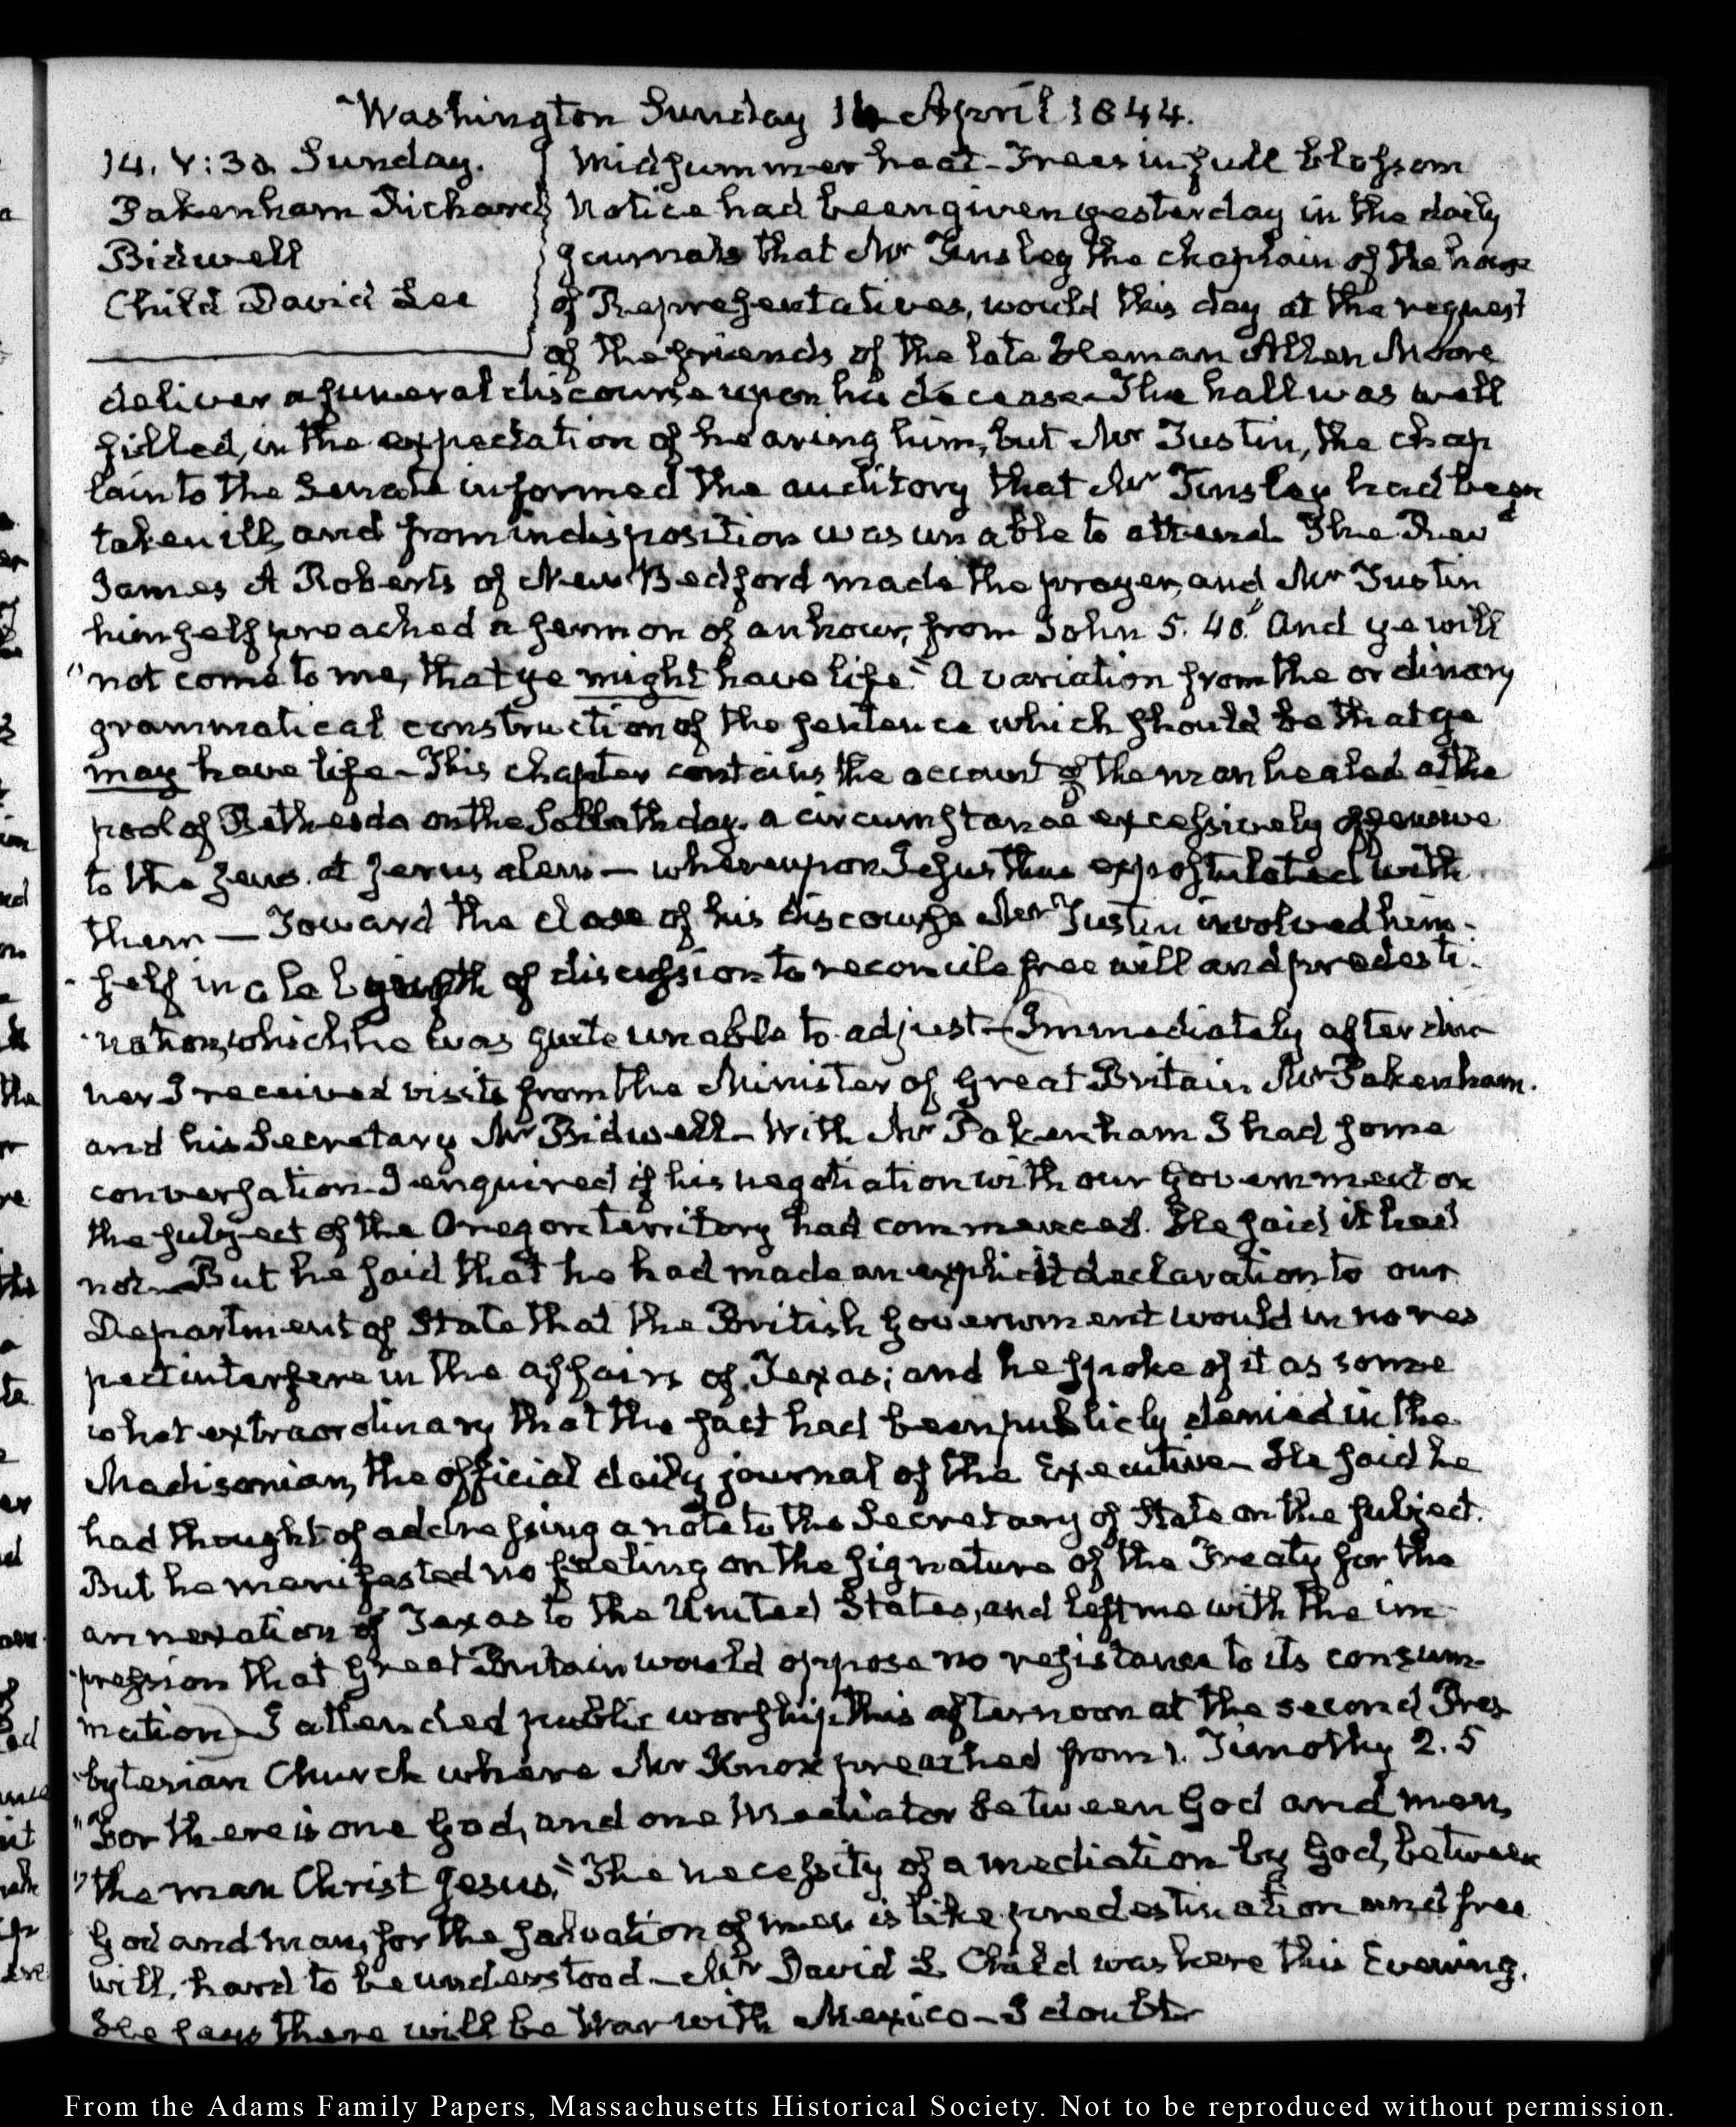 Washington Sunday 14 April 1844.
14. V:30. Sunday.
Pakenham Richard
Bidwell
Child David Lee
Midsummer heat - Trees in full blossom
Notice had been given yesterday in the daily
journals that Mr Tinsley the chaplain of the house
of Representatives, would this day at the request
of the friends of the late Heman Allen Moore
deliver a funeral discourse upon his decease - The hall was well
filled, in the expectation of hearing him, but Mr Tustin, the chap
lain to the Senate informed the auditory that Mr Tinsley had been
taken ill, and from indisposition was unable to attend. The Revd
James A Roberts of New Bedford made the prayer, and Mr Tustin
himself preached a sermon of an hour, from John 5. 40. "And ye will
"not come to me, that ye might have life." A variation from the ordinary
grammatical construction of the sentence which should be that ye
may have life - This chapter contains the account of the man healed at the
pool of Bethesda on the Sabbath day. a circumstance excessively offensive
to the Jews at Jerusalem — whereupon Jesus thus expostulated with
them — Toward the close of his discourse Mr Tustin involved him-
-self in a labyrinth of discussion to reconcile free will and predesti-
-nation, which he was quite unable to adjust - (Immediately after din
ner I received visits from the Minister of Great Britain Mr Pakenham.
and his Secretary Mr Bidwell - With Mr Pakenham I had some
conversation - I enquired if his negotiation with our Government on
the subject of the Oregon territory had commenced. He said it had
not - But he said that he had made an explicit declaration to our
Department of State that the British Government would in no res
pect interfere in the affairs of Texas; and he spoke of it as some
what extraordinary that the fact had been publicly denied in the
Madisonian, the official daily journal of the Executive - He said he
had thought of addressing a note to the Secretary of State on the subject.
But he manifested no feeling on the signature of the Treaty for the
annexation of Texas to the United States, and left me with the im-
-pression that Great Britain would oppose no resistance to its consum-
mation) - I attended public worship this afternoon at the second Pres
-byterian Church where Mr Knox preached from 1. Timothy 2. 5
"For there is one God, and one Mediator between God and men,
"the man Christ Jesus." The necessity of a mediation by God, between
God and man, for the salvation of men is like predestination and free
will, hard to be understood - Mr David L Child was here this Evening.
He says there will be War with Mexico - I doubt
From the Adams Family Papers, Massachusetts Historical Society. Not to be reproduced without permission.